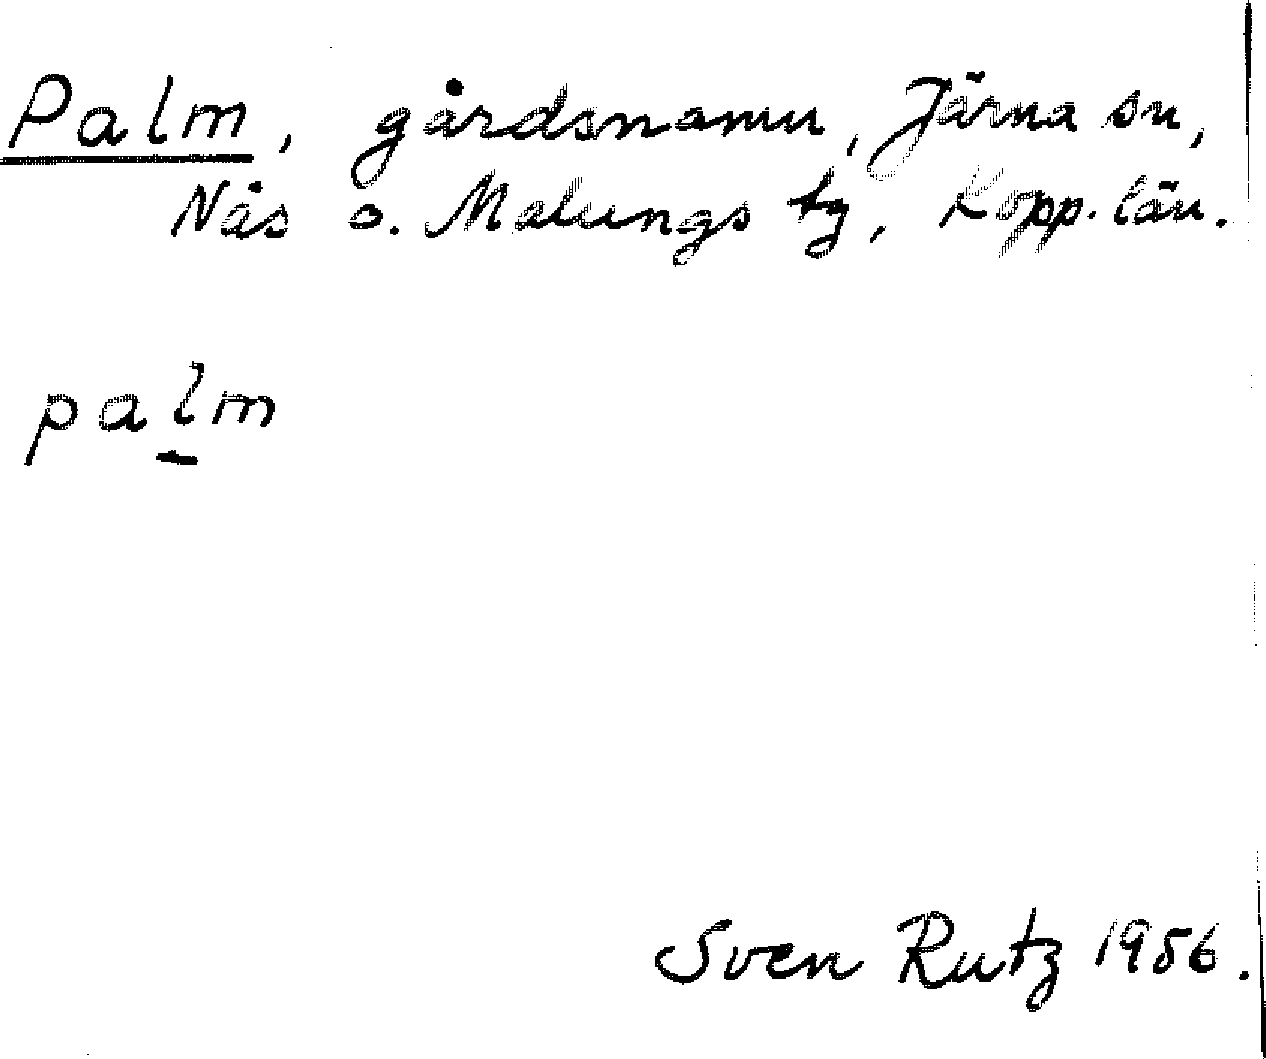 Palm, gårdsnamn, Järna sn,
Nås o. Malungs tg, Kopp. län.
palm
Sven Rutz 1956.